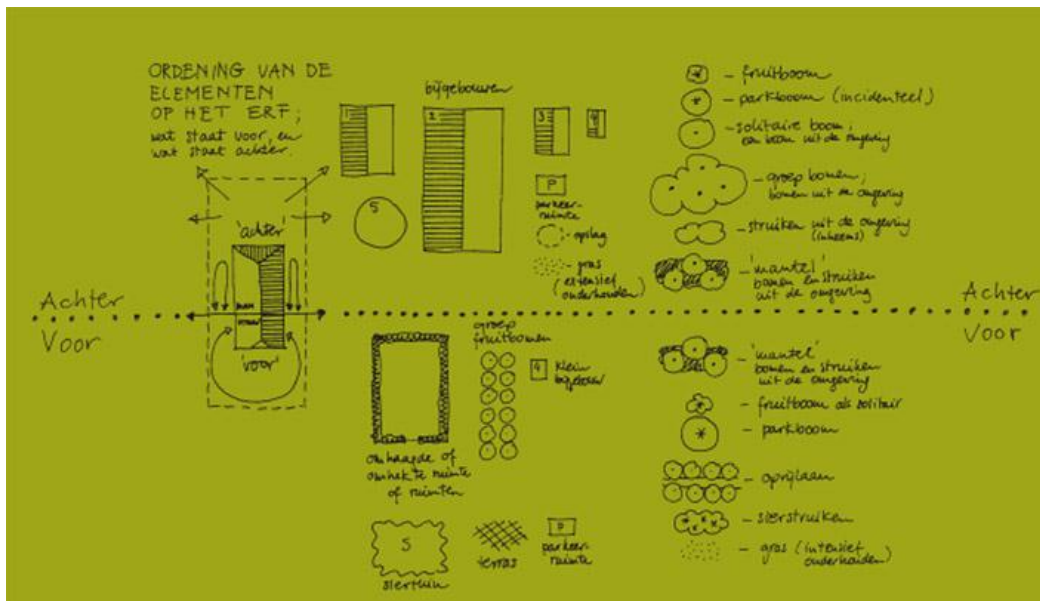 ORDENING VAN DE
ELEMENTEN
OP HET ERF;
wat staat voor, en
wat staat achter.
'achter'
man
vrouw
'voor'
Achter
Voor
bijgebouwen
1
2
3
4
5
P
parkeer-
ruimte
- opslag
- gras
(extensief
onderhouden)
- fruitboom
- parkboom (incidenteel)
- solitaire boom;
een boom uit de omgeving
- groep bomen;
bomen uit de omgeving
- struiken uit de omgeving
(inheems)
- 'mantel'
bomen en struiken
uit de omgeving
Achter
Voor
omhaagde of
omhekte ruimte
of ruimten
groep
fruitbomen
4
klein
bijgebouw
S
siertuin
terras
P
parkeer-
ruimte
- 'mantel'
bomen en struiken
uit de omgeving
- fruitboom als solitair
- parkboom
- oprijlaan
- sierstruiken
- gras (intensief
onderhouden)